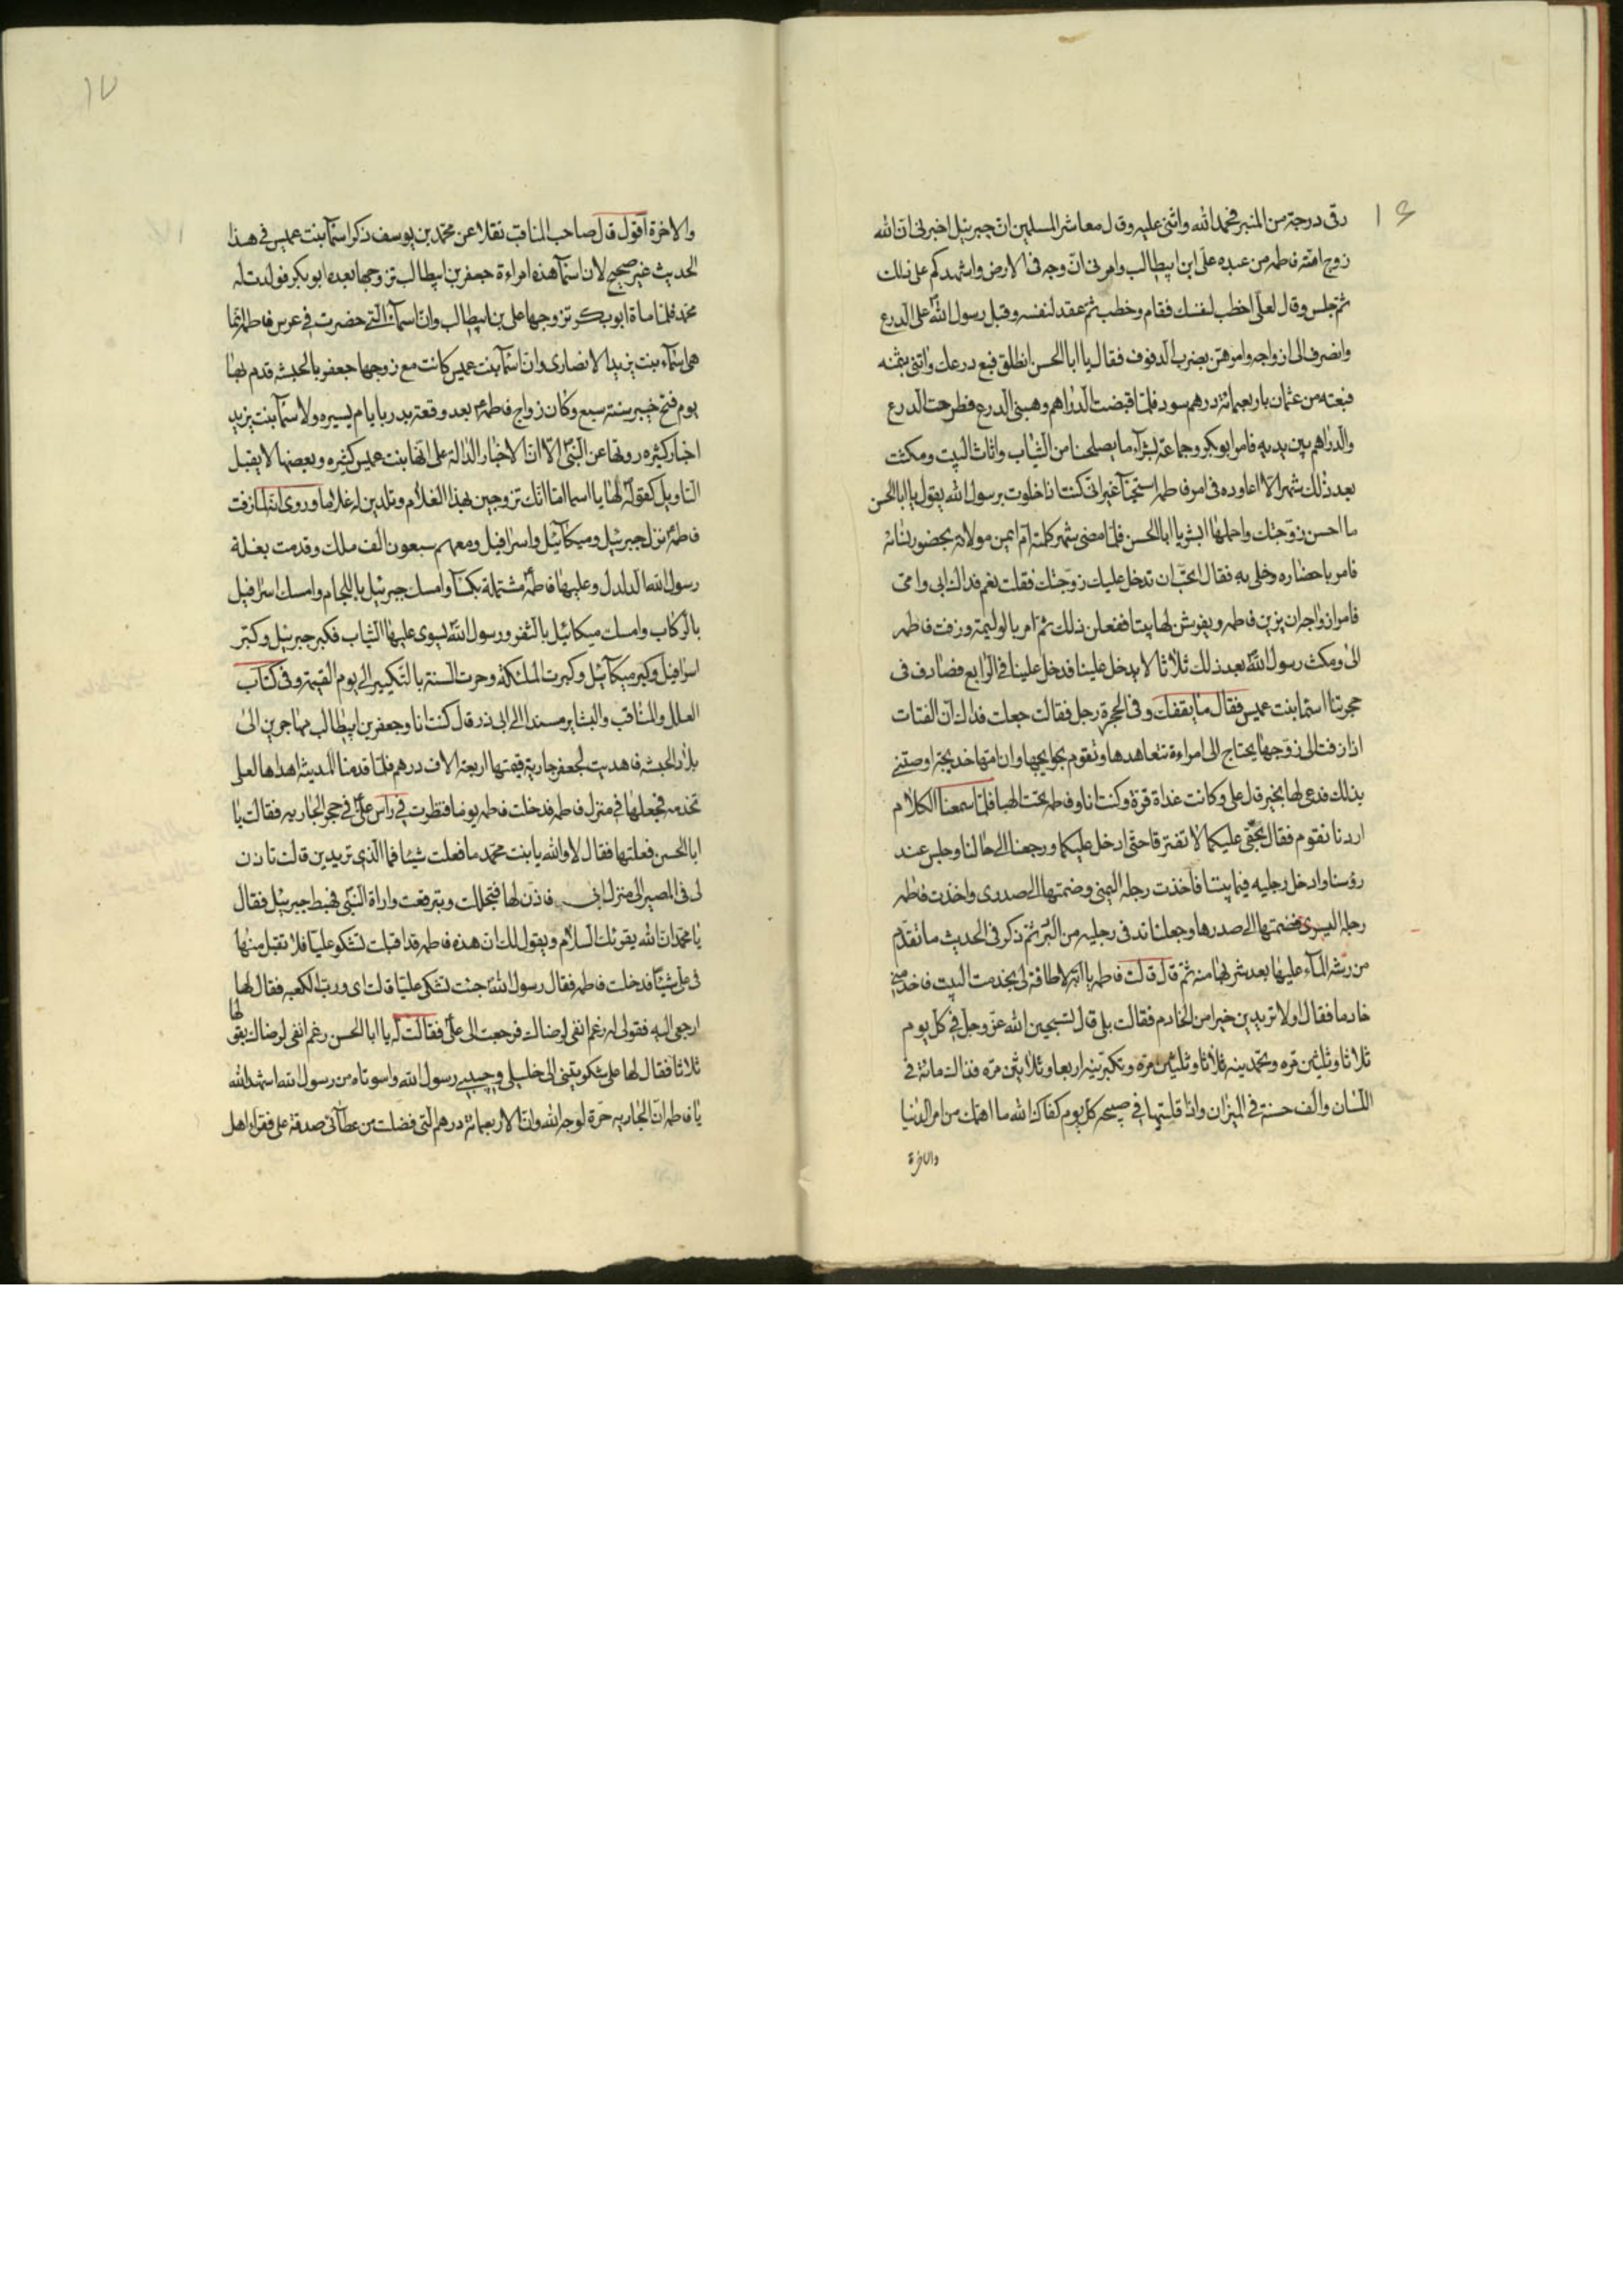 ١٦
رقى درجة من المنبر فحمد الله واثنى عليه وقال معاشر المسلمين ان جبرئيل اخبرنى ان الله
زوج امته فاطمه من عبده على ابن ابيطالب وامرنى ان ازوجه فى الارض واشهدكم على ذلك
ثم جلس وقال لعلى اخطب لنفسك فقام وخطب ثم عقد لنفسه وقبل رسول الله على الدرع
وانصرف الى ازواجه وامرهن بضرب الدفوف فقال يا ابا الحسن انطلق فبع درعك واتنى بثمنه
فبعته من عثمان باربعمائة درهم سود فلما قبضت الدراهم وهبنى الدرع فطرحت الدرع
والدراهم بين يديه فامر ابوبكر وجماعة لشراء ما يصلحنا من الثياب واثاث البيت ومكثت
بعد ذلك شهرا لا اعاوده فى امر فاطمه استحيآ غير انى كنت اذا خلوت برسول الله يقول يا ابا الحسن
ما احسن زوجتك واجملها ابشر يا ابا الحسن فلما مضى شهر كلمته ام ايمن مولاته بحضور نسائه
فامر باحضاره وخلى به فقال اتحب ان تدخل عليك زوجتك فقلت نعم فداك ابى وامى
فامر ازواجه ان يزين فاطمه ويفرش لها بيتا ففعلن ذلك ثم امر بالوليمة وزفت فاطمه
الىّ ومكث رسول الله بعد ذلك ثلاثا لا يدخل علينا فدخل علينا فى الرابع فصادف فى
حجرتنا اسما بنت عميس فقال ما يقفك وفى الحجرة رجل فقالت جعلت فداك ان الفتات
اذا زفت الى زوجها يحتاج الى امراءة تتعاهدها وتقوم بحوايجها وان امها خديجة اوصتنى
بذلك فدعى لها بخير قال على وكانت غداة قرة وكنت انا وفاطمه تحت العبا فلما سمعنا الكلام
اردنا نقوم فقال بحقى عليكما لا تفترقا حتى ادخل عليكما ورجعنا الى حالنا وجلس عند
رؤسنا وادخل رجليه فيما بيننا فاخذت رجله اليمنى وضمتها الى صدرى واخذت فاطمه
رجله اليسرى فضمتها الى صدرها وجعلنا ندفى رجليه من البرد ثم ذكر فى الحديث ما تقدم
من رشه المآء عليها بعد شربها منه ثم قال قالت فاطمه يا ابه لا طاقة لى بخدمت البيت فاخدمنى
خادما فقال اولا تريدين خيرا من الخادم فقالت بلى قال تسبحين الله عز وجل فى كل يوم
ثلاثا وثلثين مره وتحمدينه ثلاثا وثلثين مرة وتكبرينه اربعا وثلاثين مره فذالك مائة فى
اللسان والف حسنة فى الميزان واذا قلتيها فى صبيحه كل يوم كفاك الله ما اهمك من امر الدنيا
والاخرة
١٧
والاخرة اقول قال صاحب المناقب نقلا عن محمد بن يوسف ذكر اسمآ بنت عميس فى هذا
الحديث غير صحيح لان اسمآ هذه امراءة جعفر بن ابيطالب تزوجها بعده ابوبكر فولدت له
محمد فلما مات ابوبكر تزوجها على بن ابيطالب وان اسمآء التى حضرت فى عرس فاطمه انما
هى اسمآء بنت يزيد الانصارى وان اسمآ بنت عميس كانت مع زوجها جعفر بالحبشه قدم بها
يوم فتح خيبر سنة سبع وكان زواج فاطمه بعد وقعة بدر بايام يسيره ولاسمآ بنت يزيد
اخبار كثيره روتها عن النبى الا ان الاخبار الدالة على انها بنت عميس كثيره وبعضها لا يقبل
التاويل كقوله لها يا اسما اما انك تزوجين بهذا الغلام وتلدين له غلاما وروى انه لما زفت
فاطمه نزل جبرئيل وميكآئيل واسرافيل ومعهم سبعون الف ملك وقدمت بغلة
رسول الله الدلدل وعليها فاطمه مشتملة بكسآ وامسك جبرئيل باللجام وامسك اسرافيل
بالركاب وامسك ميكائيل بالثفر ورسول الله يسوى عليها الثياب فكبر جبرئيل وكبر
اسرافيل وكبر ميكآئيل وكبرت الملئكة وجرت السنة بالتكبير الى يوم القيمة وفى كتاب
العلل والمناقب والبشاير مسندا الى ابى ذر قال كنت انا وجعفر بن ابيطالب مهاجرين الى
بلاد الحبشه فاهديت لجعفر جارية قيمتها اربعة الاف درهم فلما قدمنا المدينة اهداها لعلى
تخدمه فجعلها فى منزل فاطمه فدخلت فاطمه يوما فنظرت فى راس على فى حجر الجاريه فقالت يا
ابا الحسن فعلتها فقال لا والله يا بنت محمد ما فعلت شيئا فما الذى تريدين قالت تاذن
لى فى المصير الى منزل ابى فاذن لها فتجللت وتبرقعت وارادة النبى فهبط جبرئيل فقال
يا محمد ان الله يقرئك السلام ويقول لك ان هذه فاطمه قد اقبلت تشكو عليا فلا تقبل منها
فى على شيئا فدخلت فاطمه فقال رسول الله جئت تشكى عليا قالت اى ورب الكعبه فقال لها
ارجعى اليه فقولى له رغم انفى لرضاك فرجعت الى على فقالت له يا ابا الحسن رغم انفى لرضاك بقو لها
ثلاثا فقال لها على شكوتينى الى خليلى وحبيبى رسول الله واسوتاه من رسول الله اشهد الله
يا فاطمه ان الجاريه حرة لوجه الله وان الاربعمائة درهم التى فضلت من عطآئى صدقة على فقراء اهل